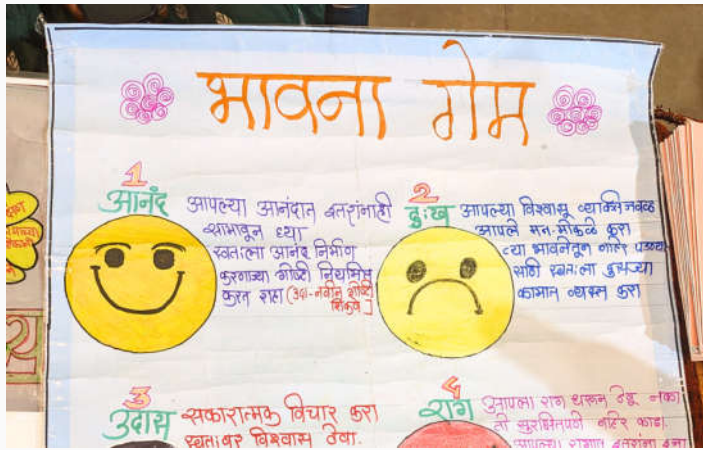 भावना गेम
1
आनंद
आपल्या आनंदात इतरांनाही
सामावून घ्या
स्वतःला आनंद निर्माण
करणाऱ्या गोष्टी नियमित
करत राहा (उदा-नवीन गोष्टी
शिकणे)
2
दुःख
आपल्या विश्वासू व्यक्तिजवळ
आपले मन मोकळे करा
त्या भावनेतून बाहेर पडण्या
साठी स्वतःला दुसऱ्या
कामात व्यस्त करा
3
उदास
सकारात्मक विचार करा
स्वतःवर विश्वास ठेवा.
4
राग
आपला राग धरून ठेवू नका
तो सुरक्षितपणे बाहेर काढा.
आपल्या रागात इतरांना